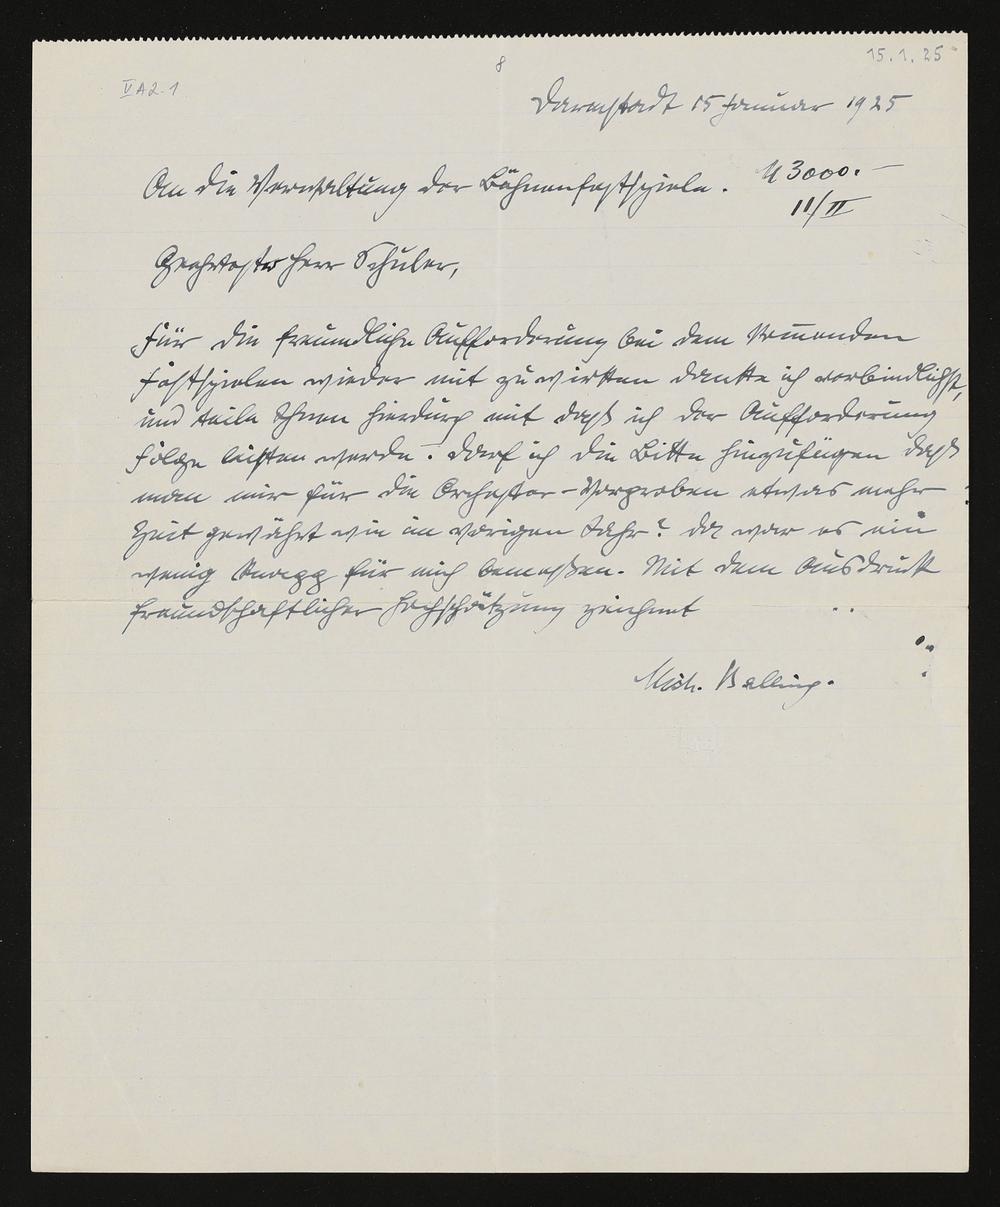 15.1.25
8
V A2-1
Darmstadt 15 Januar 1925
An die Verwaltung der Bühnenfestspiele.
M 3000.—
11/II
Geehrtester Herr Schuler,
Für die freundliche Aufforderung bei dem kommenden
Festspielen wieder mit zu wirken danke ich verbindlichst,
und teile Ihnen hierdurch mit daß ich der Aufforderung
Folge leisten werde. Darf ich die Bitte hinzufügen daß
man mir für die Orchester-Vorproben etwas mehr
Zeit gewährt wie im vorigen Jahr? Da war es ein
wenig knapp für mich bemeßen. Mit dem Ausdruck
freundschaftlicher Hochschätzung zeichnet
Mich. Balling.